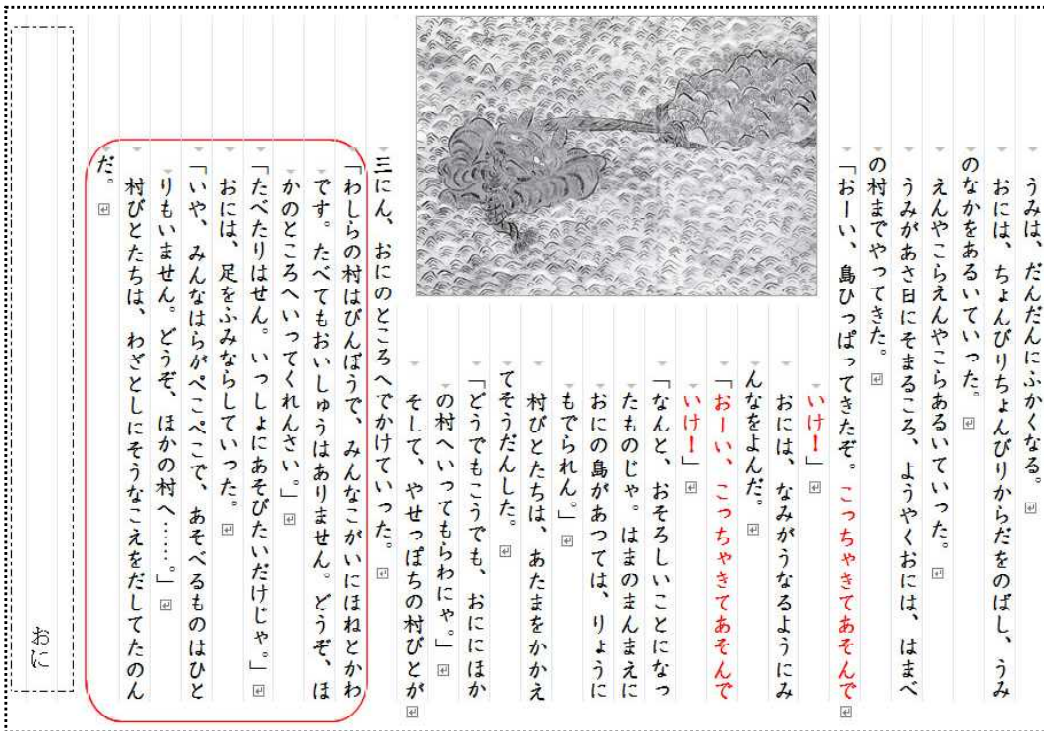 うみは、だんだんにふかくなる。
おには、ちょんびりちょんびりからだをのばし、うみ
のなかをあるいていった。
えんやこらえんやこらあるいていった。
うみがあさ日にそまるころ、ようやくおには、はまべ
の村までやってきた。
「おーい、島ひっぱってきたぞ。こっちゃきてあそんで
いけ！」
おには、なみがうなるようにみ
んなをよんだ。
「おーい、こっちゃきてあそんで
いけ！」
「なんと、おそろしいことになっ
たものじゃ。はまのまんまえに
おにの島があつては、りょうに
もでられん。」
村びとたちは、あたまをかかえ
てそうだんした。
「どうでもこうでも、おににほか
の村へいってもらわにゃ。」
そして、やせっぽちの村びとが
三にん、おにのところへでかけていった。
「わしらの村はびんぼうで、みんなこがいにほねとかわ
です。たべてもおいしゅうはありません。どうぞ、ほ
かのところへいってくれんさい。」
「たべたりはせん。いっしょにあそびたいだけじゃ。」
おには、足をふみならしていった。
「いや、みんなはらがぺこぺこで、あそべるものはひと
りもいません。どうぞ、ほかの村へ……。」
村びとたちは、わざとしにそうなこえをだしてたのん
だ。
おに